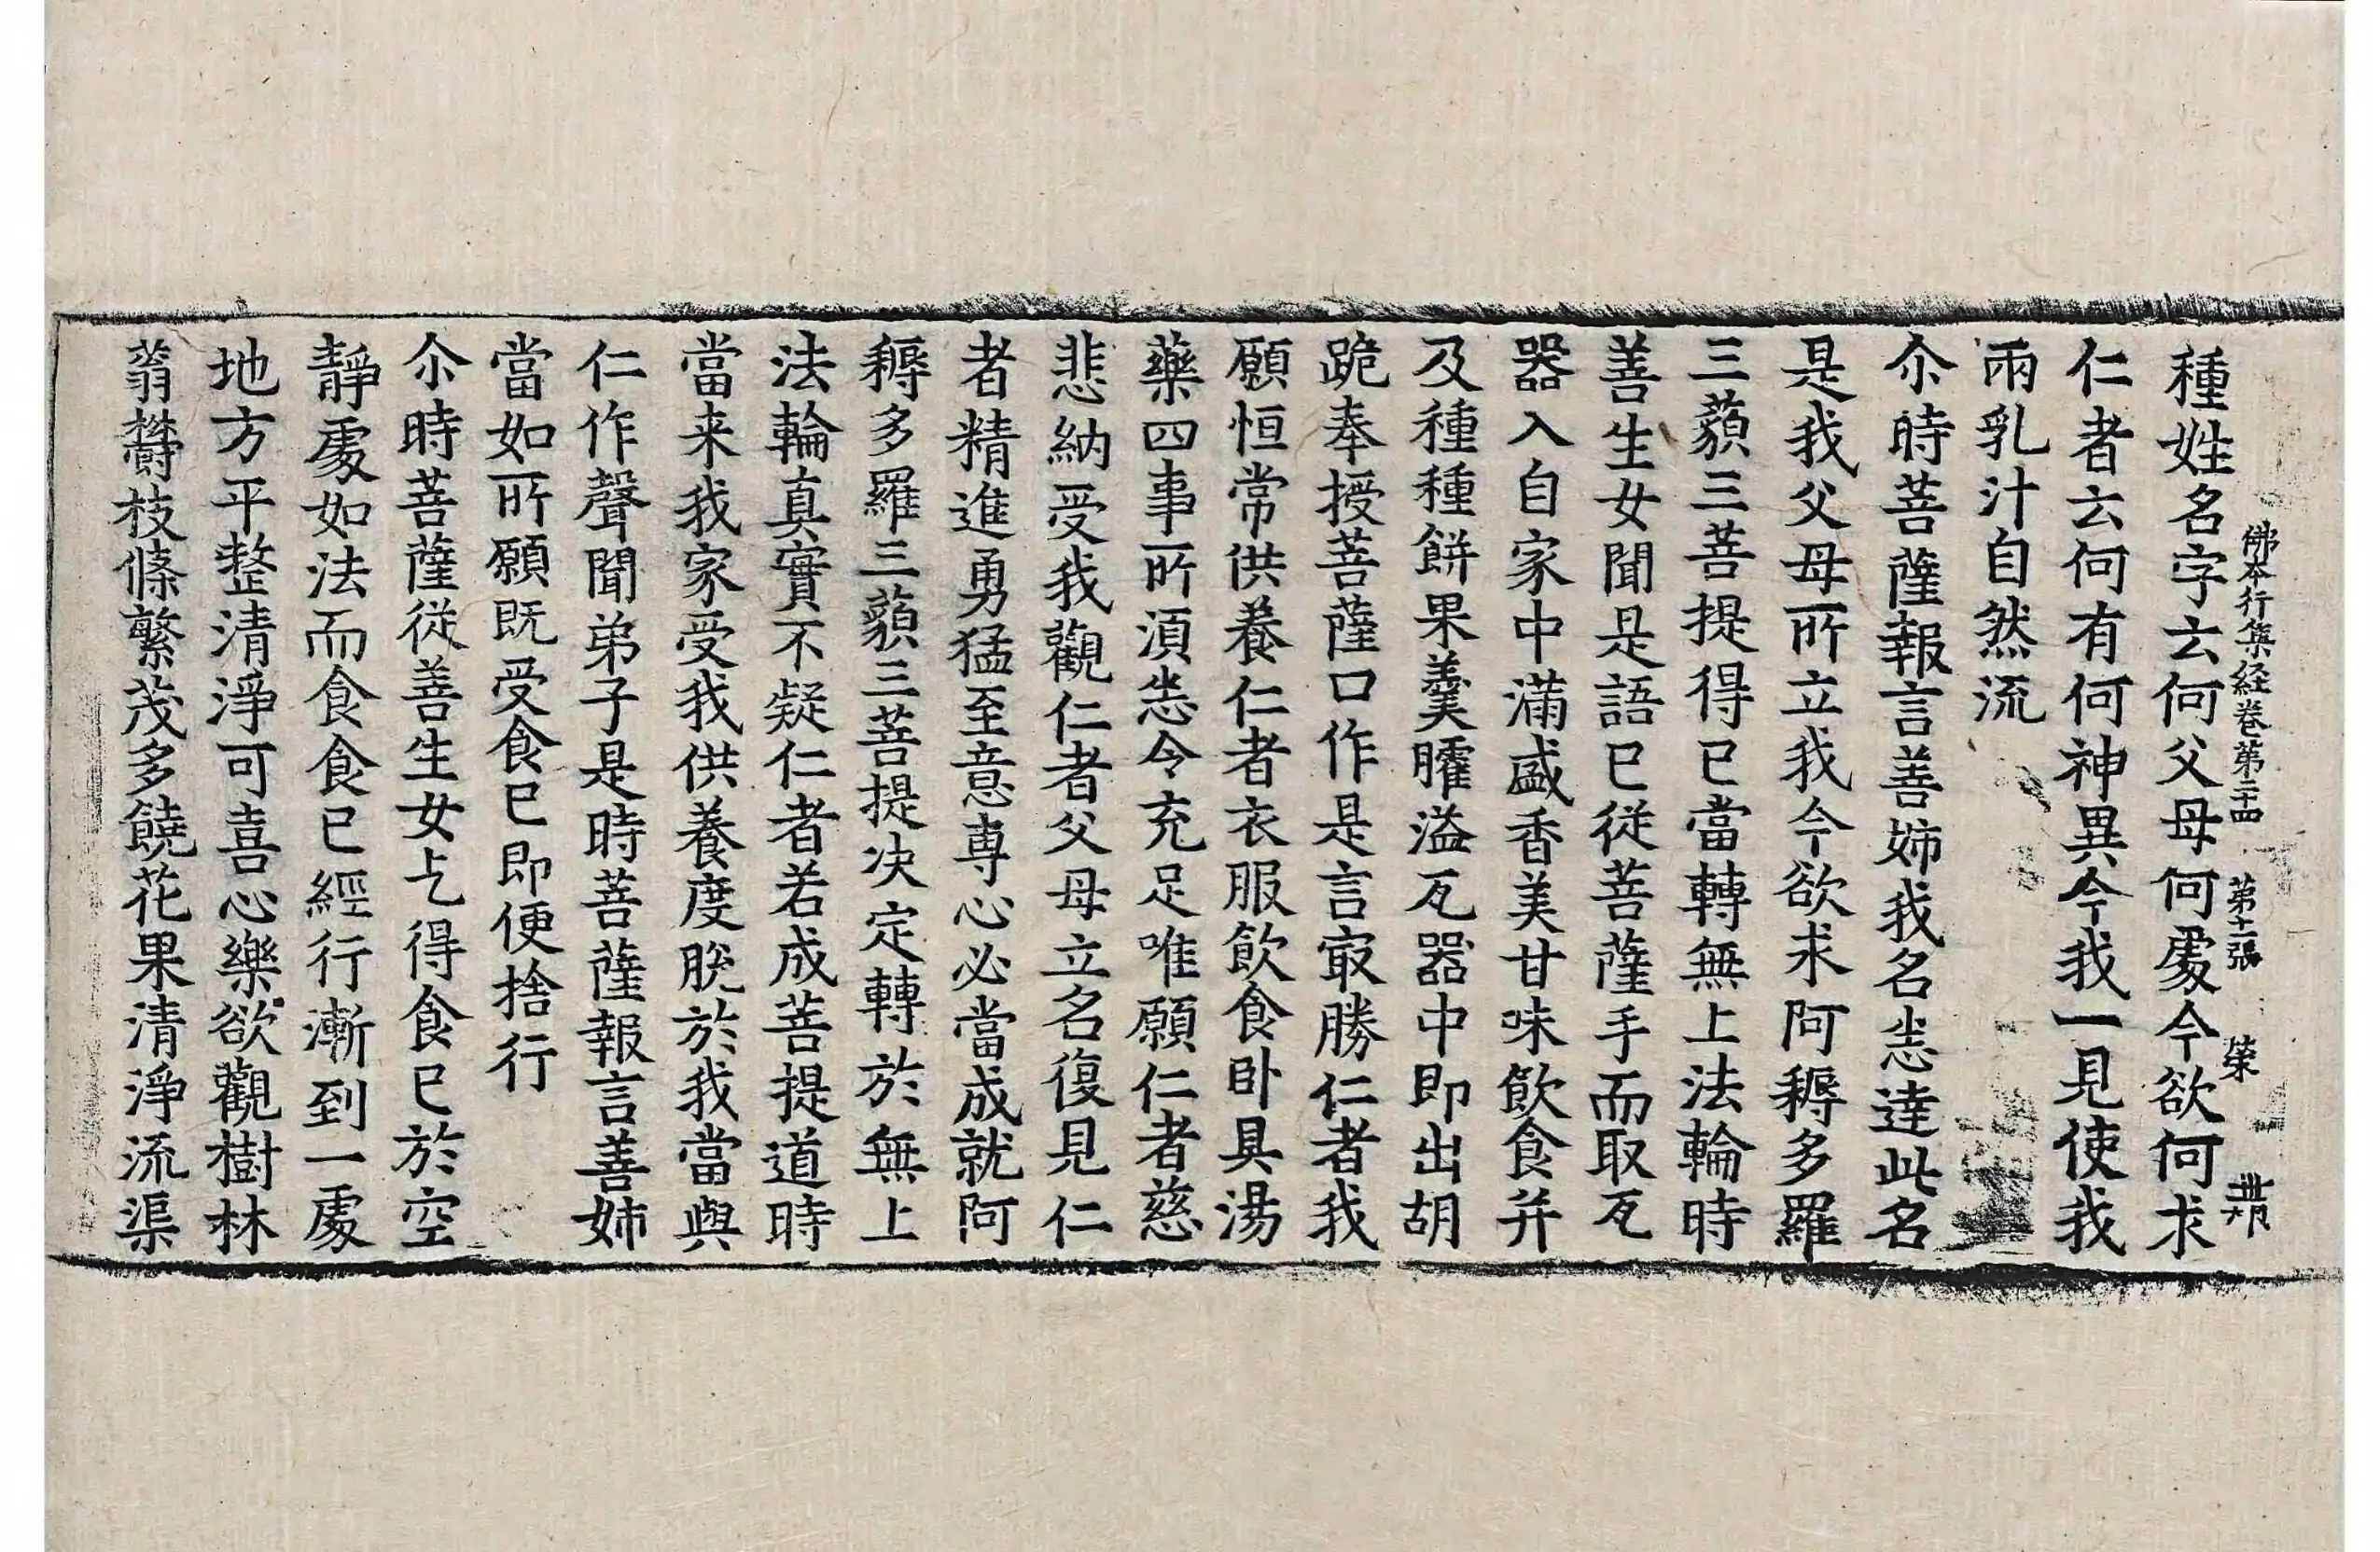 佛本行集経卷第二十四 第十一張 榮
種姓名字云何父母何處今欲何求
仁者云何有何神異今我一見使我
兩乳汁自然流
尒時菩薩報言善姊我名悉達此名
是我父母所立我今欲求阿耨多羅
三藐三菩提得已當轉無上法輪時
善生女聞是語已從菩薩手而取瓦
器入自家中滿盛香美甘味飲食并
及種種餅果羹臛溢瓦器中即出胡
跪奉授菩薩口作是言㝡勝仁者我
願恒常供養仁者衣服飲食卧具湯
藥四事所須悉令充足唯願仁者慈
悲納受我觀仁者父母立名復見仁
者精進勇猛至意專心必當成就阿
耨多羅三藐三菩提決定轉於無上
法輪真實不疑仁者若成菩提道時
當来我家受我供養度脫於我當與
仁作聲聞弟子是時菩薩報言善姊
當如所願既受食已即便捨行
尒時菩薩從善生女乞得食已於空
靜處如法而食食已經行漸到一處
地方平整清淨可喜心樂欲觀樹林
蓊欝枝條繁茂多饒花果清淨流渠